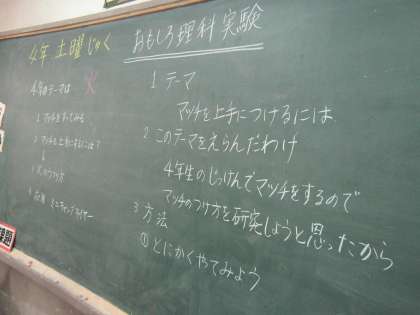 4年 土曜じゅく
今年のテーマは 火
1 マッチをすってみる
2 マッチを上手にするには?
↓
火のつけ方
応用 ミニキャンプファイヤー
おもしろ理科実験
1 テーマ
マッチを上手につけるには
2 このテーマをえらんだわけ
4年生のじっけんでマッチをするので
マッチのつけ方を研究しようと思ったから
3 方法
① とにかくやってみよう
課題